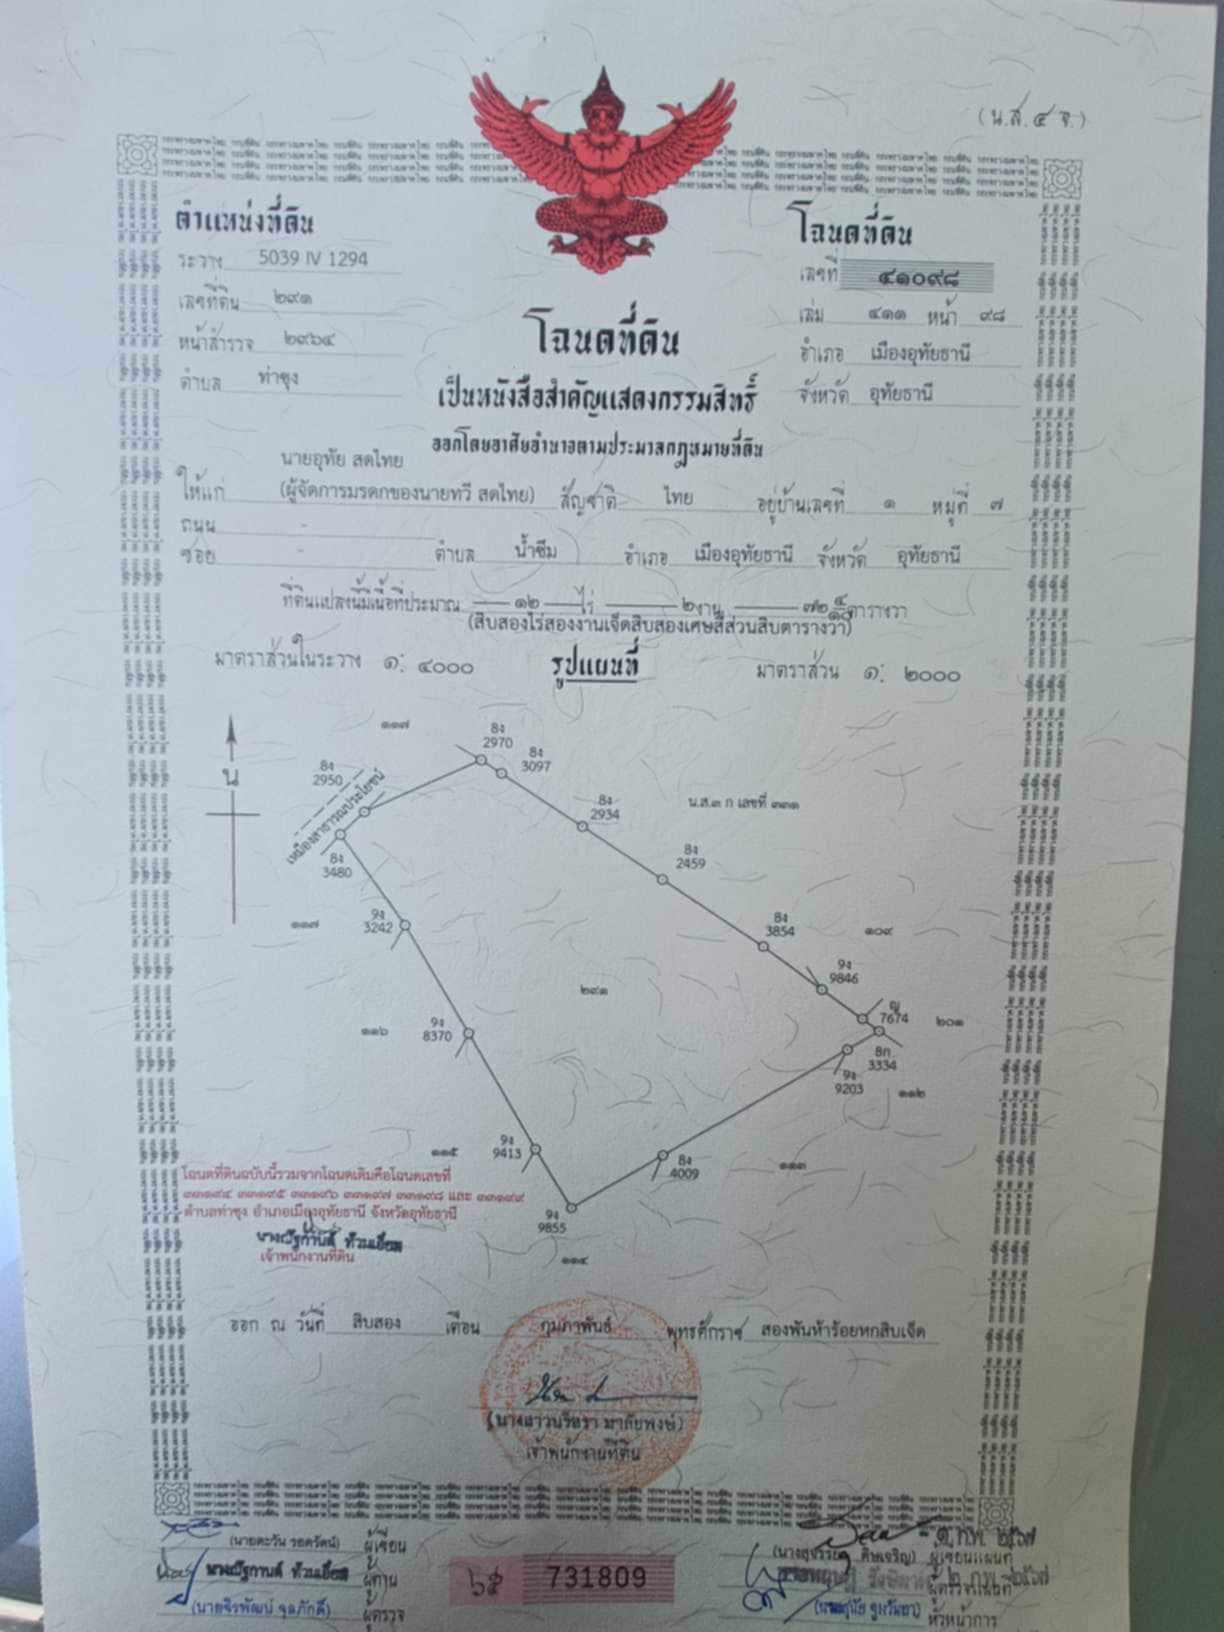 (น.ส. ๔ จ.)
ตำแหน่งที่ดิน
ระวาง 5039 IV 1294
เลขที่ดิน ๒๙๑
หน้าสำรวจ ๒๙๖๔
ตำบล ท่าซุง
โฉนดที่ดิน
เลขที่ ๔๑๐๙๘
เล่ม ๔๑๑ หน้า ๙๘
อำเภอ เมืองอุทัยธานี
จังหวัด อุทัยธานี
โฉนดที่ดิน
เป็นหนังสือสำคัญแสดงกรรมสิทธิ์
ออกโดยอาศัยอำนาจตามประมวลกฎหมายที่ดิน
นายอุทัย สดไทย
ให้แก่ (ผู้จัดการมรดกของนายทวี สดไทย) สัญชาติ ไทย อยู่บ้านเลขที่ ๑ หมู่ที่ ๗
ถนน -
ซอย - ตำบล น้ำซึม อำเภอ เมืองอุทัยธานี จังหวัด อุทัยธานี
ที่ดินแปลงนี้มีเนื้อที่ประมาณ ๑๒ ไร่ ๒ งาน ๗๒ ๔/๑๐ ตารางวา
(สิบสองไร่สองงานเจ็ดสิบสองเศษสี่ส่วนสิบตารางวา)
มาตราส่วนในระวาง ๑: ๔๐๐๐ รูปแผนที่ มาตราส่วน ๑: ๒๐๐๐
๑๑๗
8ง
2970
8ง
3097
น
8ง
2950
เหมืองสาธารณประโยชน์
8ง
2934
น.ส.๓ ก เลขที่ ๓๓๑
8ง
3480
8ง
2459
๑๑๗
9ง
3242
8ง
3854
๑๐๙
9ง
9846
๒๙๑
๑๑๖
9ง
8370
ญ
7674
๒๐๑
8ก
3334
9ง
9203
๑๑๒
๑๑๕
9ง
9413
8ง
4009
๑๑๓
9ง
9855
๑๑๔
โฉนดที่ดินฉบับนี้รวมจากโฉนดเดิมคือโฉนดเลขที่
๓๓๑๙๔ ๓๓๑๙๕ ๓๓๑๙๖ ๓๓๑๙๗ ๓๓๑๙๘ และ ๓๓๑๙๙
ตำบลท่าซุง อำเภอเมืองอุทัยธานี จังหวัดอุทัยธานี
เจ้าพนักงานที่ดิน
ออก ณ วันที่ สิบสอง เดือน กุมภาพันธ์ พุทธศักราช สองพันห้าร้อยหกสิบเจ็ด
เจ้าพนักงานที่ดิน
(นายตะวัน รอดรัตน์) ผู้เขียน
ผู้ทาน
(นายจิรพัฒน์ จุลภักดี) ผู้ตรวจ
๖๕ 731809
ก.พ. ๒๕๖๗
ผู้เขียนแผนที่
ก.พ. ๒๕๖๗
หัวหน้าการ